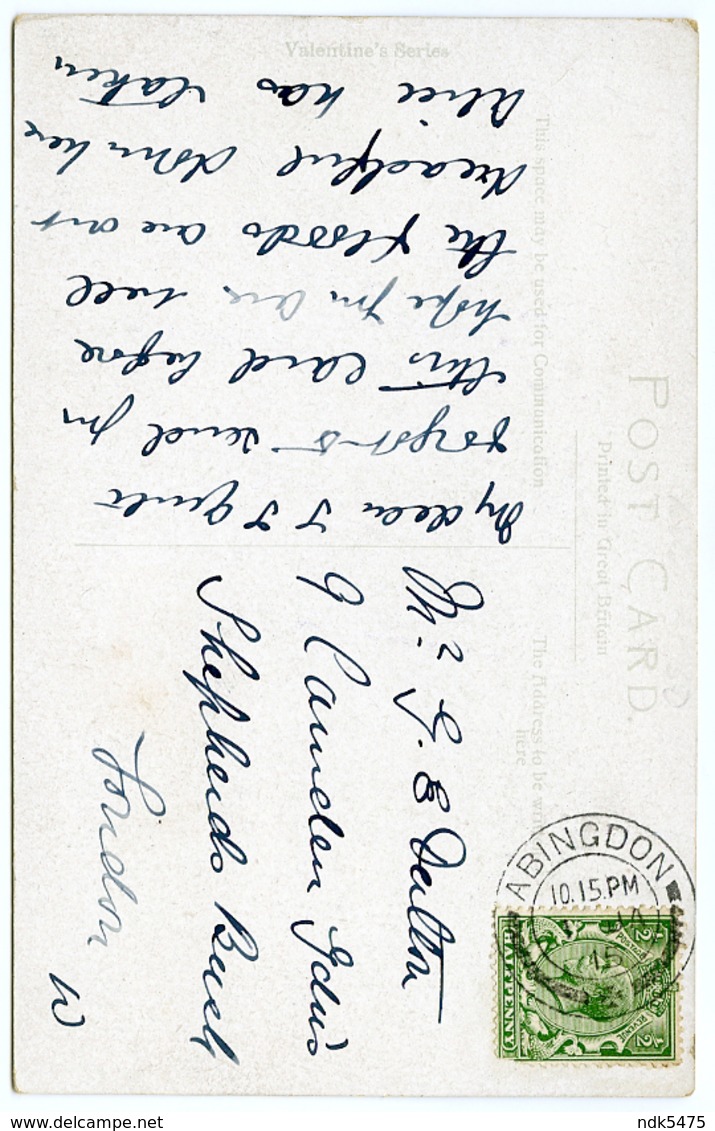 Valentine's Series
POST CARD.
Printed in Great Britain
This space may be used for Communication
The Address to be
here
My dear J J quite
forgot to send you
this card before
hope you are well
the floods are
dreadful down here
Alice has taken
Mr. G. E Dalton
9 Camden Gdns
Shepherds Bush
London
W
ABINGDON
10.15.PM
JA
15
HALFPENNY
POSTAGE
REVENUE
½
½
ndk5475